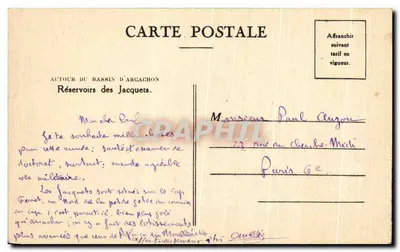 CARTE POSTALE
Affranchir
suivant
tarif en
vigueur.
AUTOUR DU BASSIN D'ARCACHON
Réservoirs des Jacquets.
Mon cher Paul
Je te souhaite mille choses
pour cette année; santé et examen de
doctorat, surtout; ensuite agréable
vie militaire.
Les Jacquets sont situés sur le cap
Ferret, au Nord de la petite
cap; c'est bien plus joli
qu'Arcachon; on y fait des lotissements
plus avancés que ceux de
Monsieur Paul
23, rue du Cherche-Midi
Paris 6e
CPARHIL